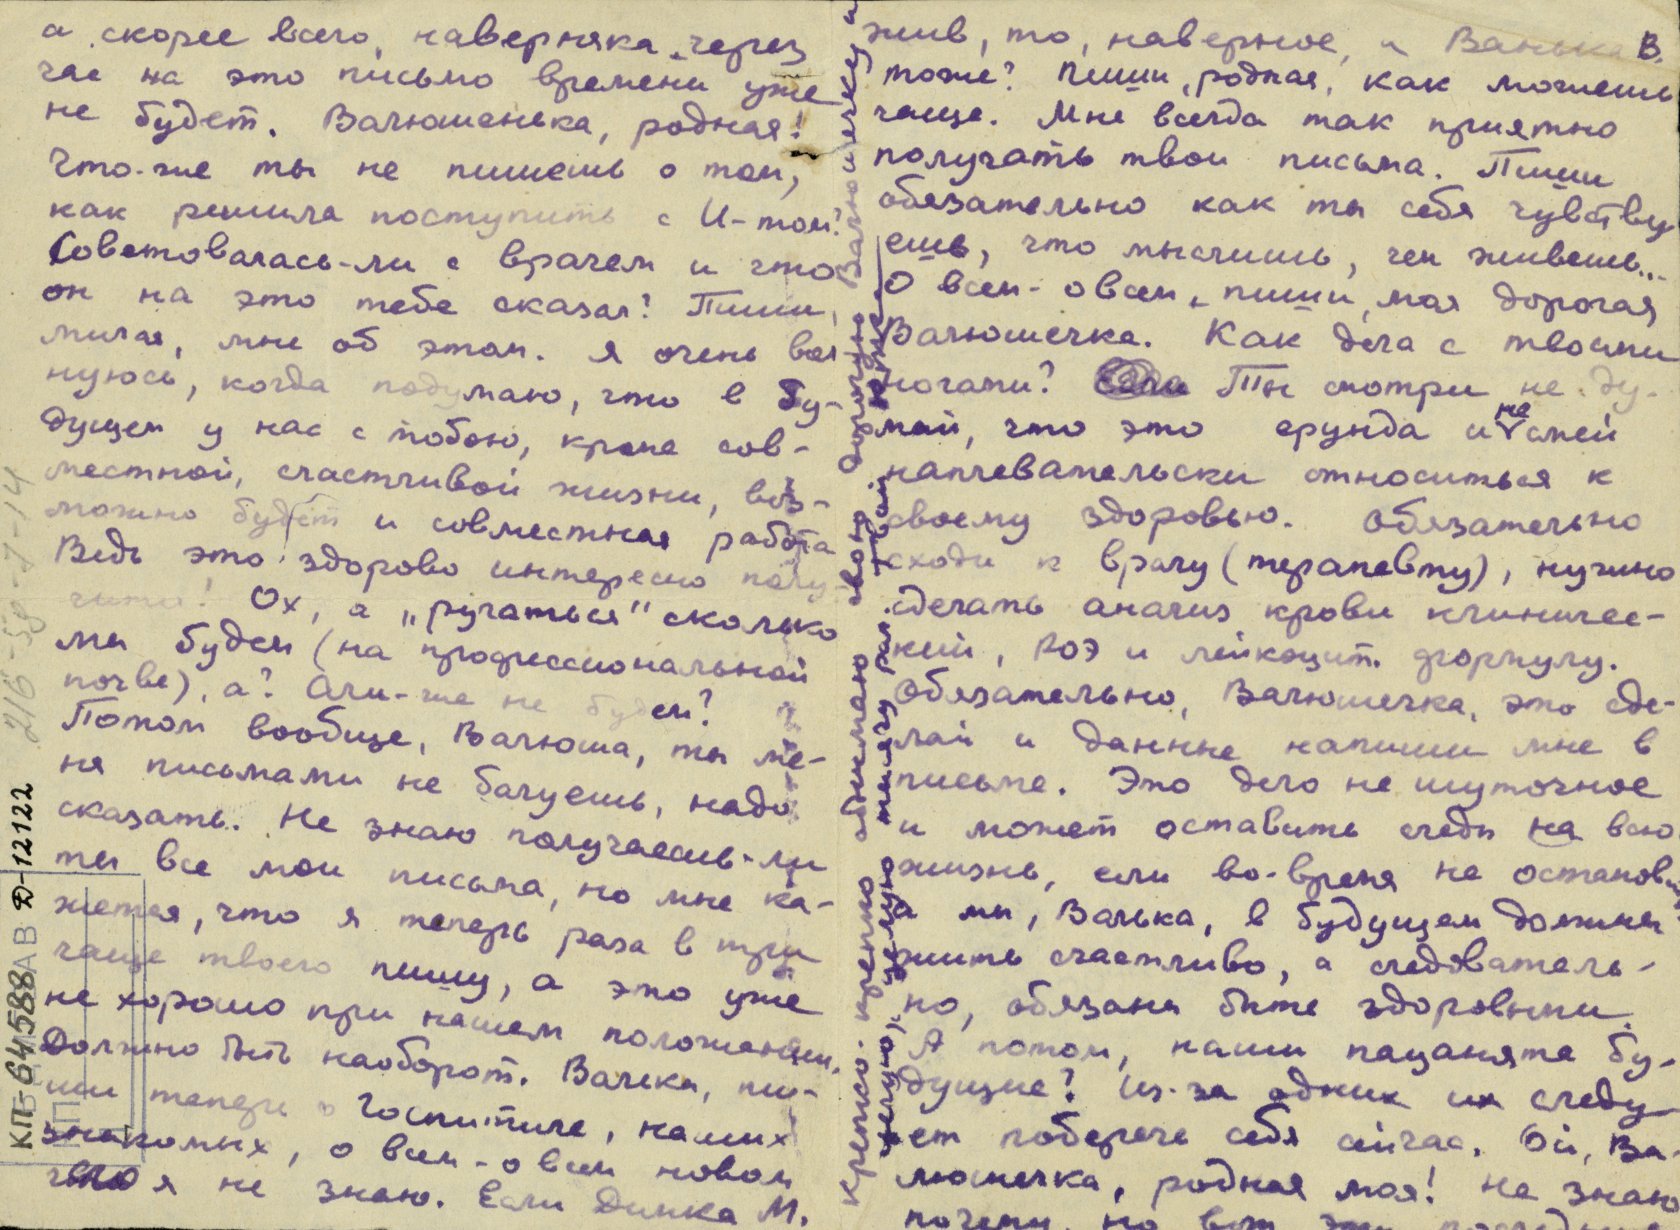 а скорее всего, наверняка, через
час на это письмо времени уже
не будет. Валюшенька, родная!
Что-же ты не пишешь о том,
как решила поступить с И-том?
Советовалась-ли с врачем и что
он на это тебе сказал? Пиши,
милая, мне об этом. Я очень вол
нуюсь, когда подумаю, что в бу-
дущем у нас с тобою, кроме сов-
местной, счастливой жизни, воз-
можно будет и совместная работа
Ведь это здорово интересно полу
чится! Ох, а „ругаться" сколько
мы будем (на профессиональной
почве), а? Али-же не будем?
Потом вообще, Валюша, ты ме-
ня письмами не балуешь, надо
сказать. Не знаю получаешь-ли
ты все мои письма, но мне ка-
жется, что я теперь раза в три
чаще твоего пишу, а это уже
не хорошо при нашем положении.
Должно быть наоборот. Валька, пи-
ши теперь о госпитале, наших
знакомых, о всем-о всем новом
что я не знаю. Если Димка М.
жив, то, наверное, и Ванька В.
тоже? Пиши, родная, как можешь
чаще. Мне всегда так приятно
получать твои письма. Пиши
обязательно как ты себя чувству
ешь, что мыслишь, чем живешь...
О всем-о всем, пиши, моя дорогая
Валюшечка. Как дела с твоими
ногами? Ты смотри не ду-
май, что это ерунда и не смей
наплевательски относиться к
своему здоровью. Обязательно
сходи к врачу (терапевту), нужно
сделать анализ крови клиничес-
кий, РОЭ и лейкоцит. формулу.
Обязательно, Валюшечка, это сде-
лай и данные напиши мне в
письме. Это дело не шуточное
и может оставить следы на всю
жизнь, если во-время не останов
а мы, Валька, в будущем должны
жить счастливо, а следователь-
но, обязаны быть здоровыми.
А потом, наши пацанята бу-
дущие? Из-за одних их следу
ет поберечь себя сейчас. Ой, Ва-
люшечка, родная моя! Не знаю
почему, но вот
Крепко-крепко обнимаю свою дорогую Валюшечку и
целую, целую тысячу раз. Твой
КП-64588 Д-12122